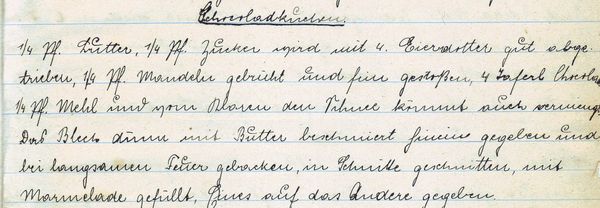 Chocoladkuchen.
1/4 Pf. Butter, 1/4 Pf. Zucker wird mit 4. Eierdotter gut abge-
trieben, 1/4 Pf. Mandeln gebrüht und fein gestoßen, 4 Taferl Chocolad
1/4 Pf. Mehl und vom Klaren den Schnee kommt auch vermengt
Das Blech dünn mit Butter beschmiert hinein gegeben und
bei langsamen Feuer gebacken, in Schnitte geschnitten, mit
Marmelade gefüllt, Eines auf das Andere gegeben.